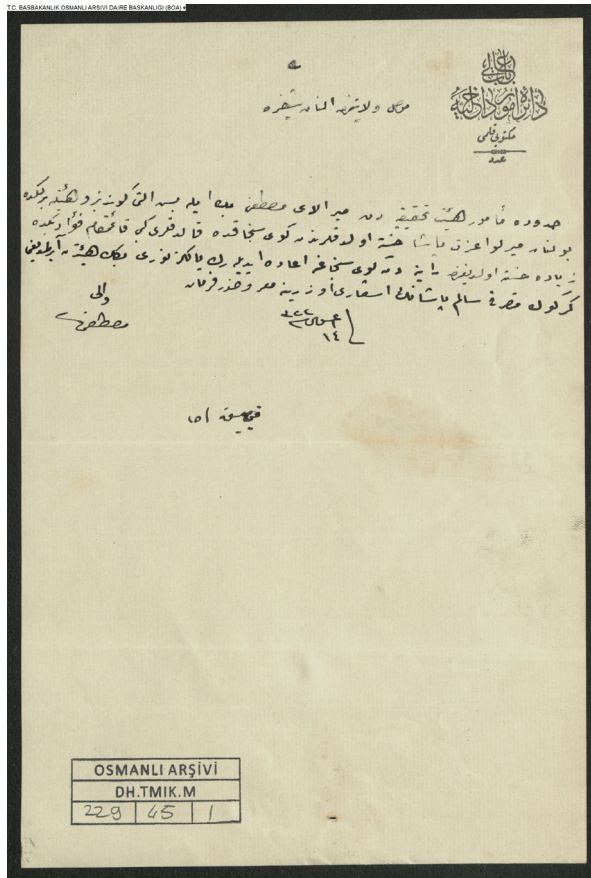 T.C. BASBAKANLIK OSMANLI ARSIVI DAIRE BASKANLIGI (BOA)
باب عالی
دائرهٔ امور داخلیه
مكتوبی قلمی
عدد
موصل ولایتندن النان شیفره
حدوده مأمور هیئت تحقیقیه دن میر الای مصطفی بك ایله بش التی كون هیئته برلكده
بولنان میرلوا عزت پاشا خسته اولدقلرندن كوی سنجاقده قالدقلری قائمقام فؤاد بكده
زیاده خسته اولدیغندن كوی سنجاغه اعاده ایدیلهرك یالكز نوری بكك هیئتدن آیرلمدیغی
كركوك متصرفی سالم پاشانك اشعاری اوزرینه معروضدر فرمان
والی
مصطفی
١٤
OSMANLI ARŞİVİ
DH.TMIK.M
229 45 1